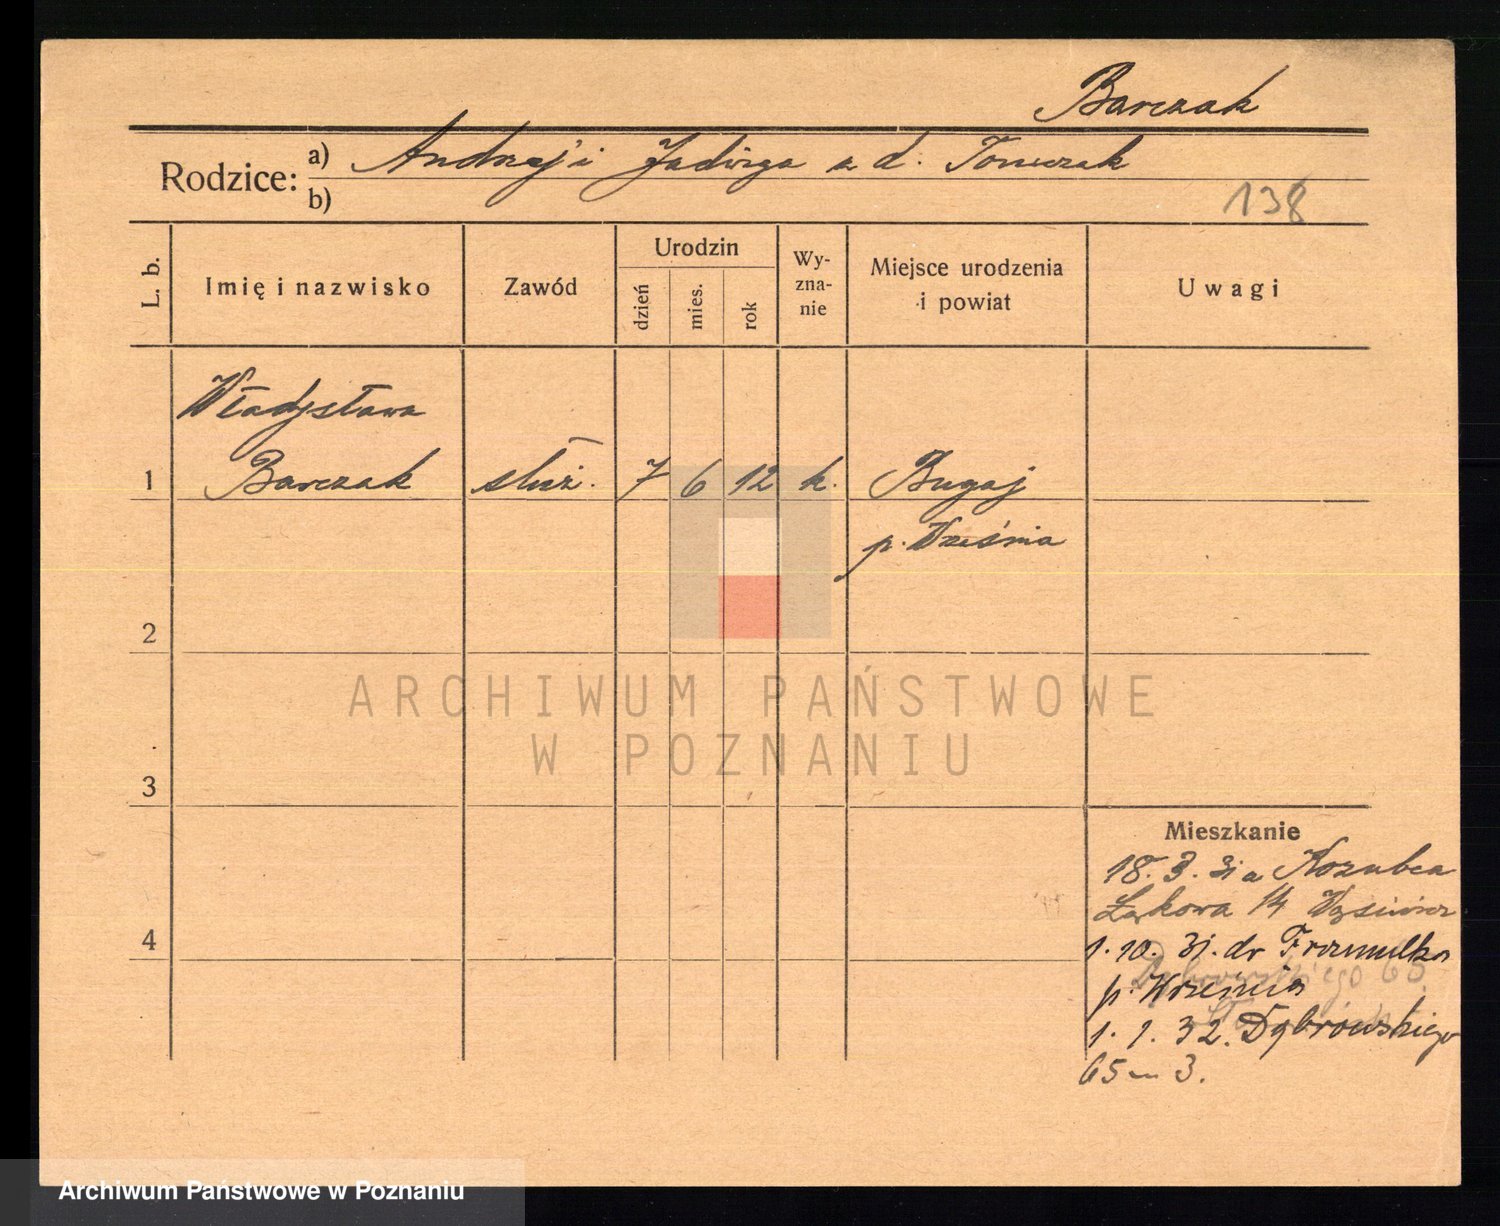 Barczak
Rodzice: a) Andrzej i Jadwiga z d. Tomczak
b)
138
L. b.
Imię i nazwisko
Zawód
Urodzin
dzień
mies.
rok
Wy-
zna-
nie
Miejsce urodzenia
i powiat
Uwagi
Władysława
1 Barczak służ. 7 6 12 k. Bugaj
p. Września
2
ARCHIWUM PAŃSTWOWE
W POZNANIU
3
Mieszkanie
18. 3. 31 a
Łąkowa 14
4
1. 10. 31. do
p. Września
1. 1. 32. Dąbrowskiego
65 m 3.
Archiwum Państwowe w Poznaniu